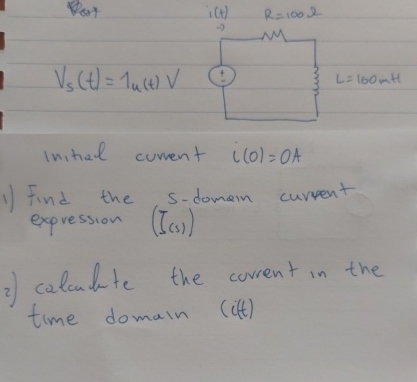 i(t) R=100Ω
Vs(t) = 1u(t) V
L=100mH
Initial current i(0)=0A
1) Find the s-domain current
expression (I(s))
2) calculate the current in the
time domain (i(t)